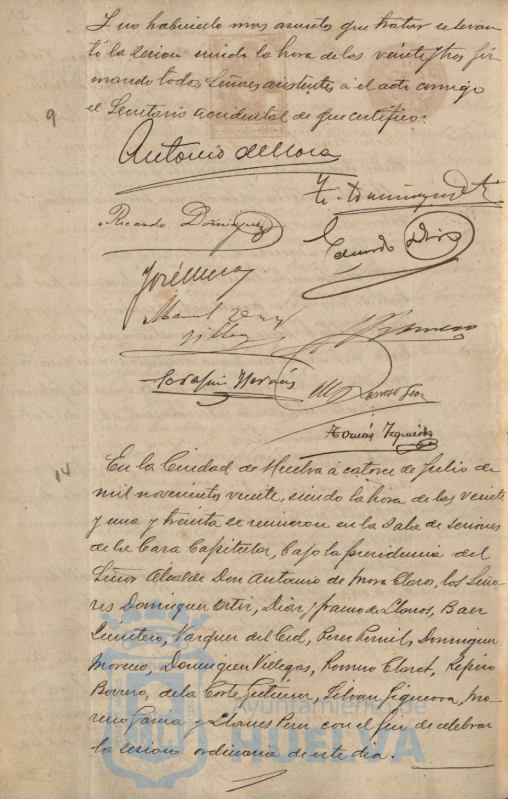 Y no habiendo mas asuntos que tratar se levan
tó la sesion siendo la hora de las veinte y tres fir
mando todos Señores asistentes á el acto conmigo
9
el Secretario accidental de que certifico.
Antonio de Mora
Ricardo Dominguez
Eduardo Diaz
José
Manuel
Villegas
Romero
Serafin
M Larroso
Tomás Izquierdo
14
En la Ciudad de Huelva á catorce de Julio de
mil novecientos veinte, siendo la hora de las veinte
y una y treinta se reunieron en la Sala de sesiones
de la Casa Capitular, bajo la presidencia del
Señor Alcalde Don Antonio de Mora Claro, los Seño
res Dominguez Ortiz, Diaz y Franco de Llanos, Baez
Quintero, Vazquez del Cid, Perez Pernil, Dominguez
Moreno, Dominguez Villegas, Romero Claret, Repiso
Borrero, de la Corte Gutierrez, Silvan Figueroa, Mo
reno Garcia y Llanes Perez con el fin de celebrar
la sesion ordinaria de este dia.
Ayuntamiento de
HUELVA